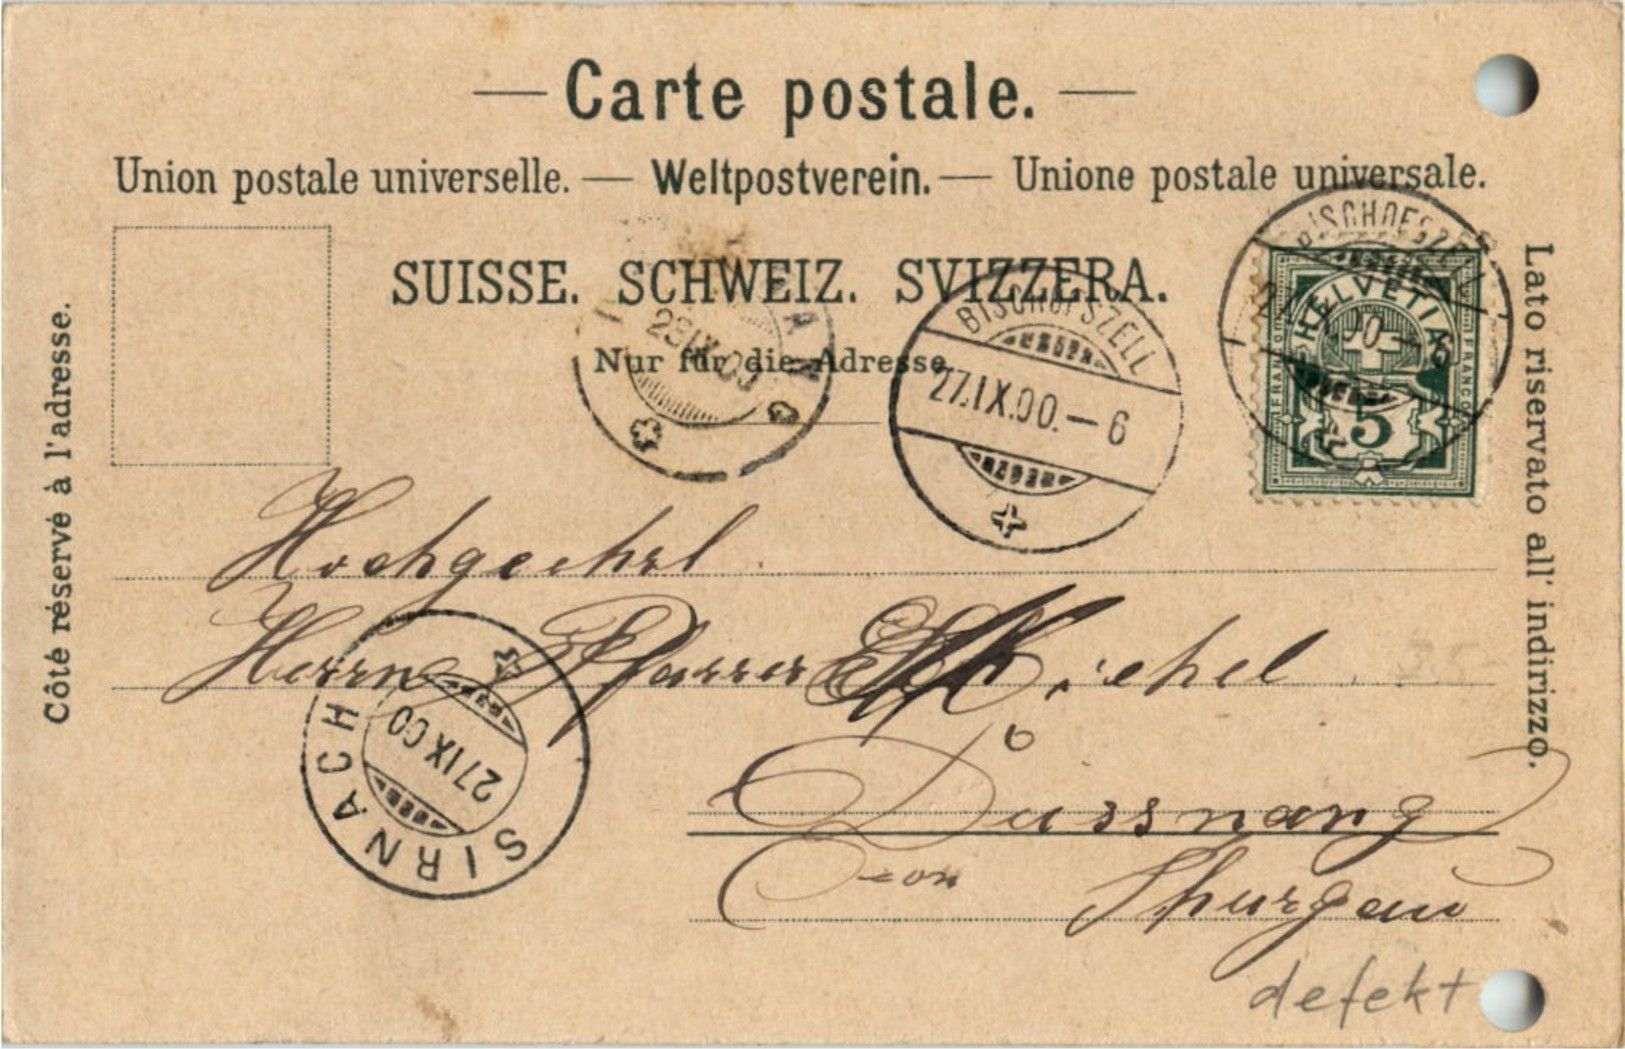 — Carte postale. —
Union postale universelle. — Weltpostverein. — Unione postale universale.
SUISSE. SCHWEIZ. SVIZZERA.
Nur für die Adresse.
Côté réservé à l'adresse.
Lato riservato all' indirizzo.
BISCHOFSZELL
27.IX.00.—6
BISCHOFSZELL
00.—6
HELVETIA
FRANCO
FRANCO
5
28 IX 00
SIRNACH
27 IX 00
Hochgeehrt.
Herrn Pfarrer Michel
Dussnang
Thurgau
defekt